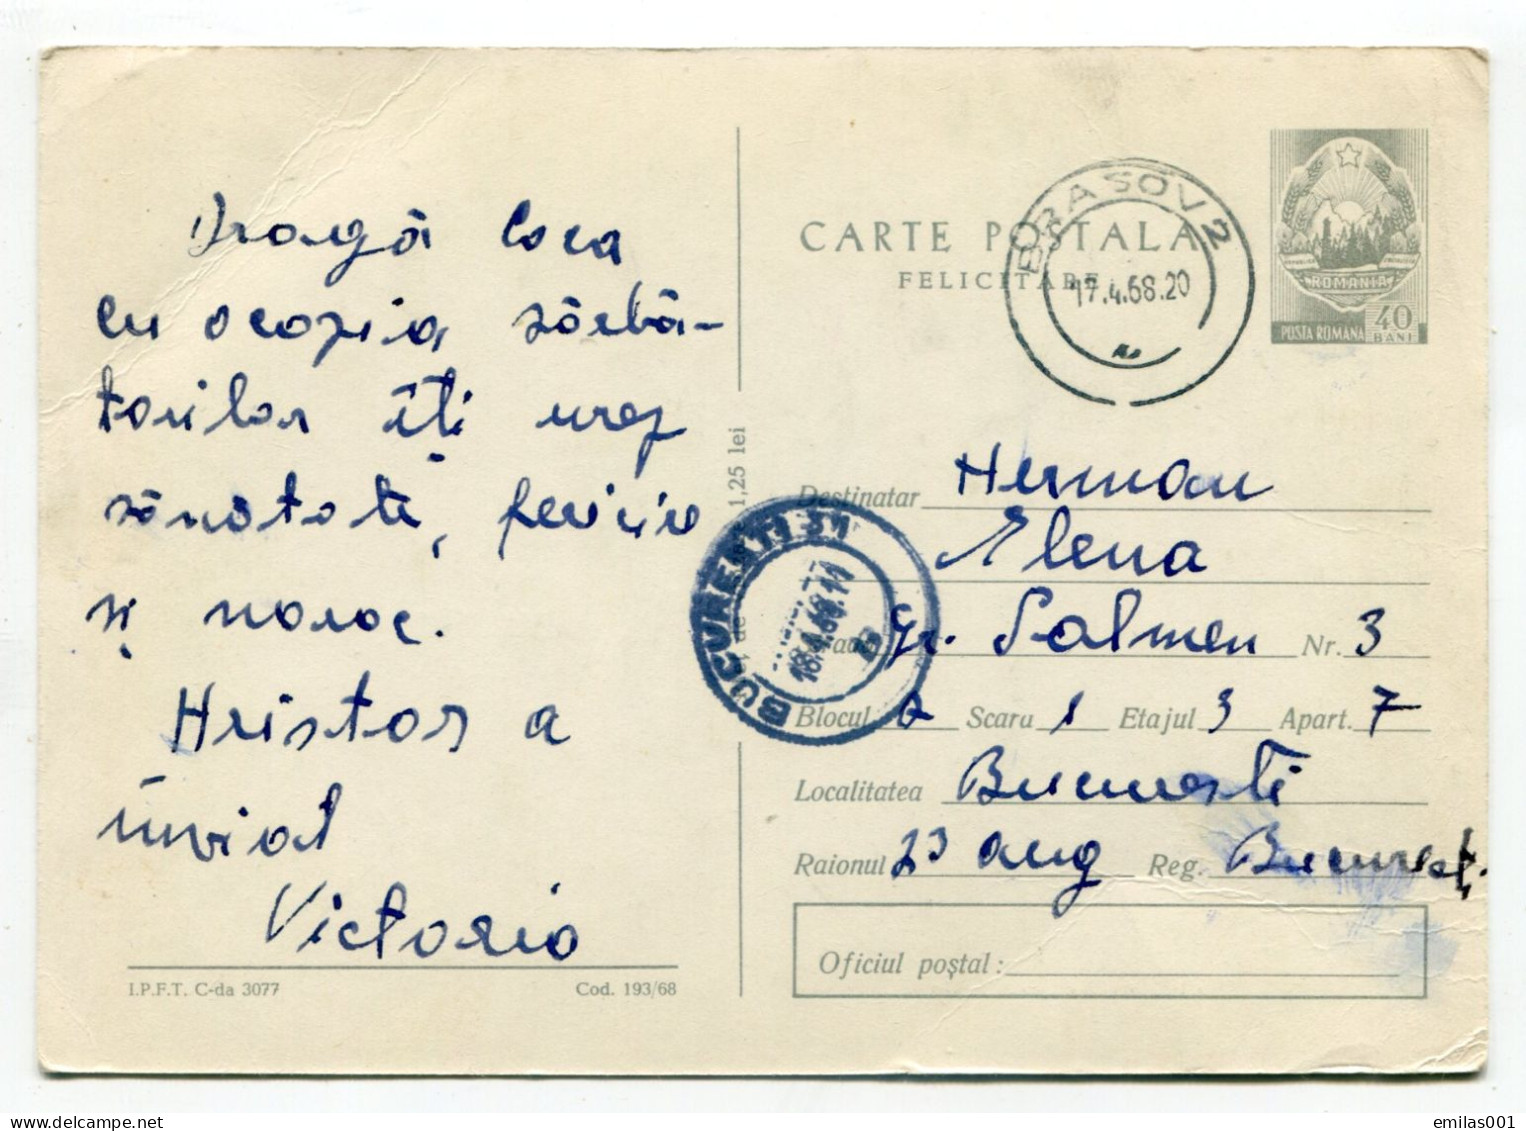 Dragă Coca
cu ocazia sărbă-
torilor îți urez
sănătate, fericire
și noroc.
Hristos a
înviat
Victoria
I.P.F.T. C-da 3077
Cod. 193/68
1,25 lei
CARTE POSTALA
FELICITARE
BRASOV 2
17.4.68.20
ROMANIA
POSTA ROMANA
40
BANI
BUCURESTI 31
18.4.68.11
Destinatar Herman
Elena
Gr. Palmeu Nr. 3
Blocul 2 Scara 1 Etajul 3 Apart. 7
Localitatea Bucuresti
Raionul 23 aug Reg. Bucureșt.
Oficiul poștal:
emilas001